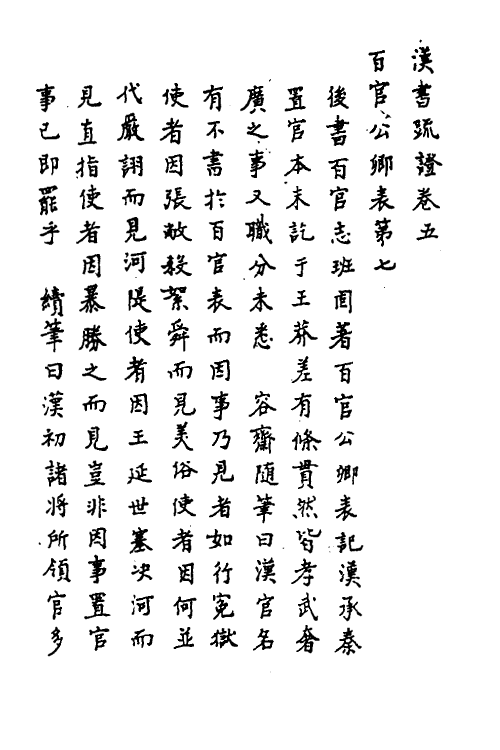 漢書疏證卷五
百官公卿表第七
後書百官志班固著百官公卿表記漢承秦
置官本末訖于王莽差有條貫然皆孝武奢
廣之事又職分未悉　容齋随筆曰漢官名
有不書於百官表而因事乃見者如行冤獄
使者因張敞殺絮舜而見美俗使者因何並
代嚴詡而見河隄使者因王延世塞決河而
見直指使者因暴勝之而見豈非因事置官
事已即罷乎　續筆曰漢初諸将所領官多